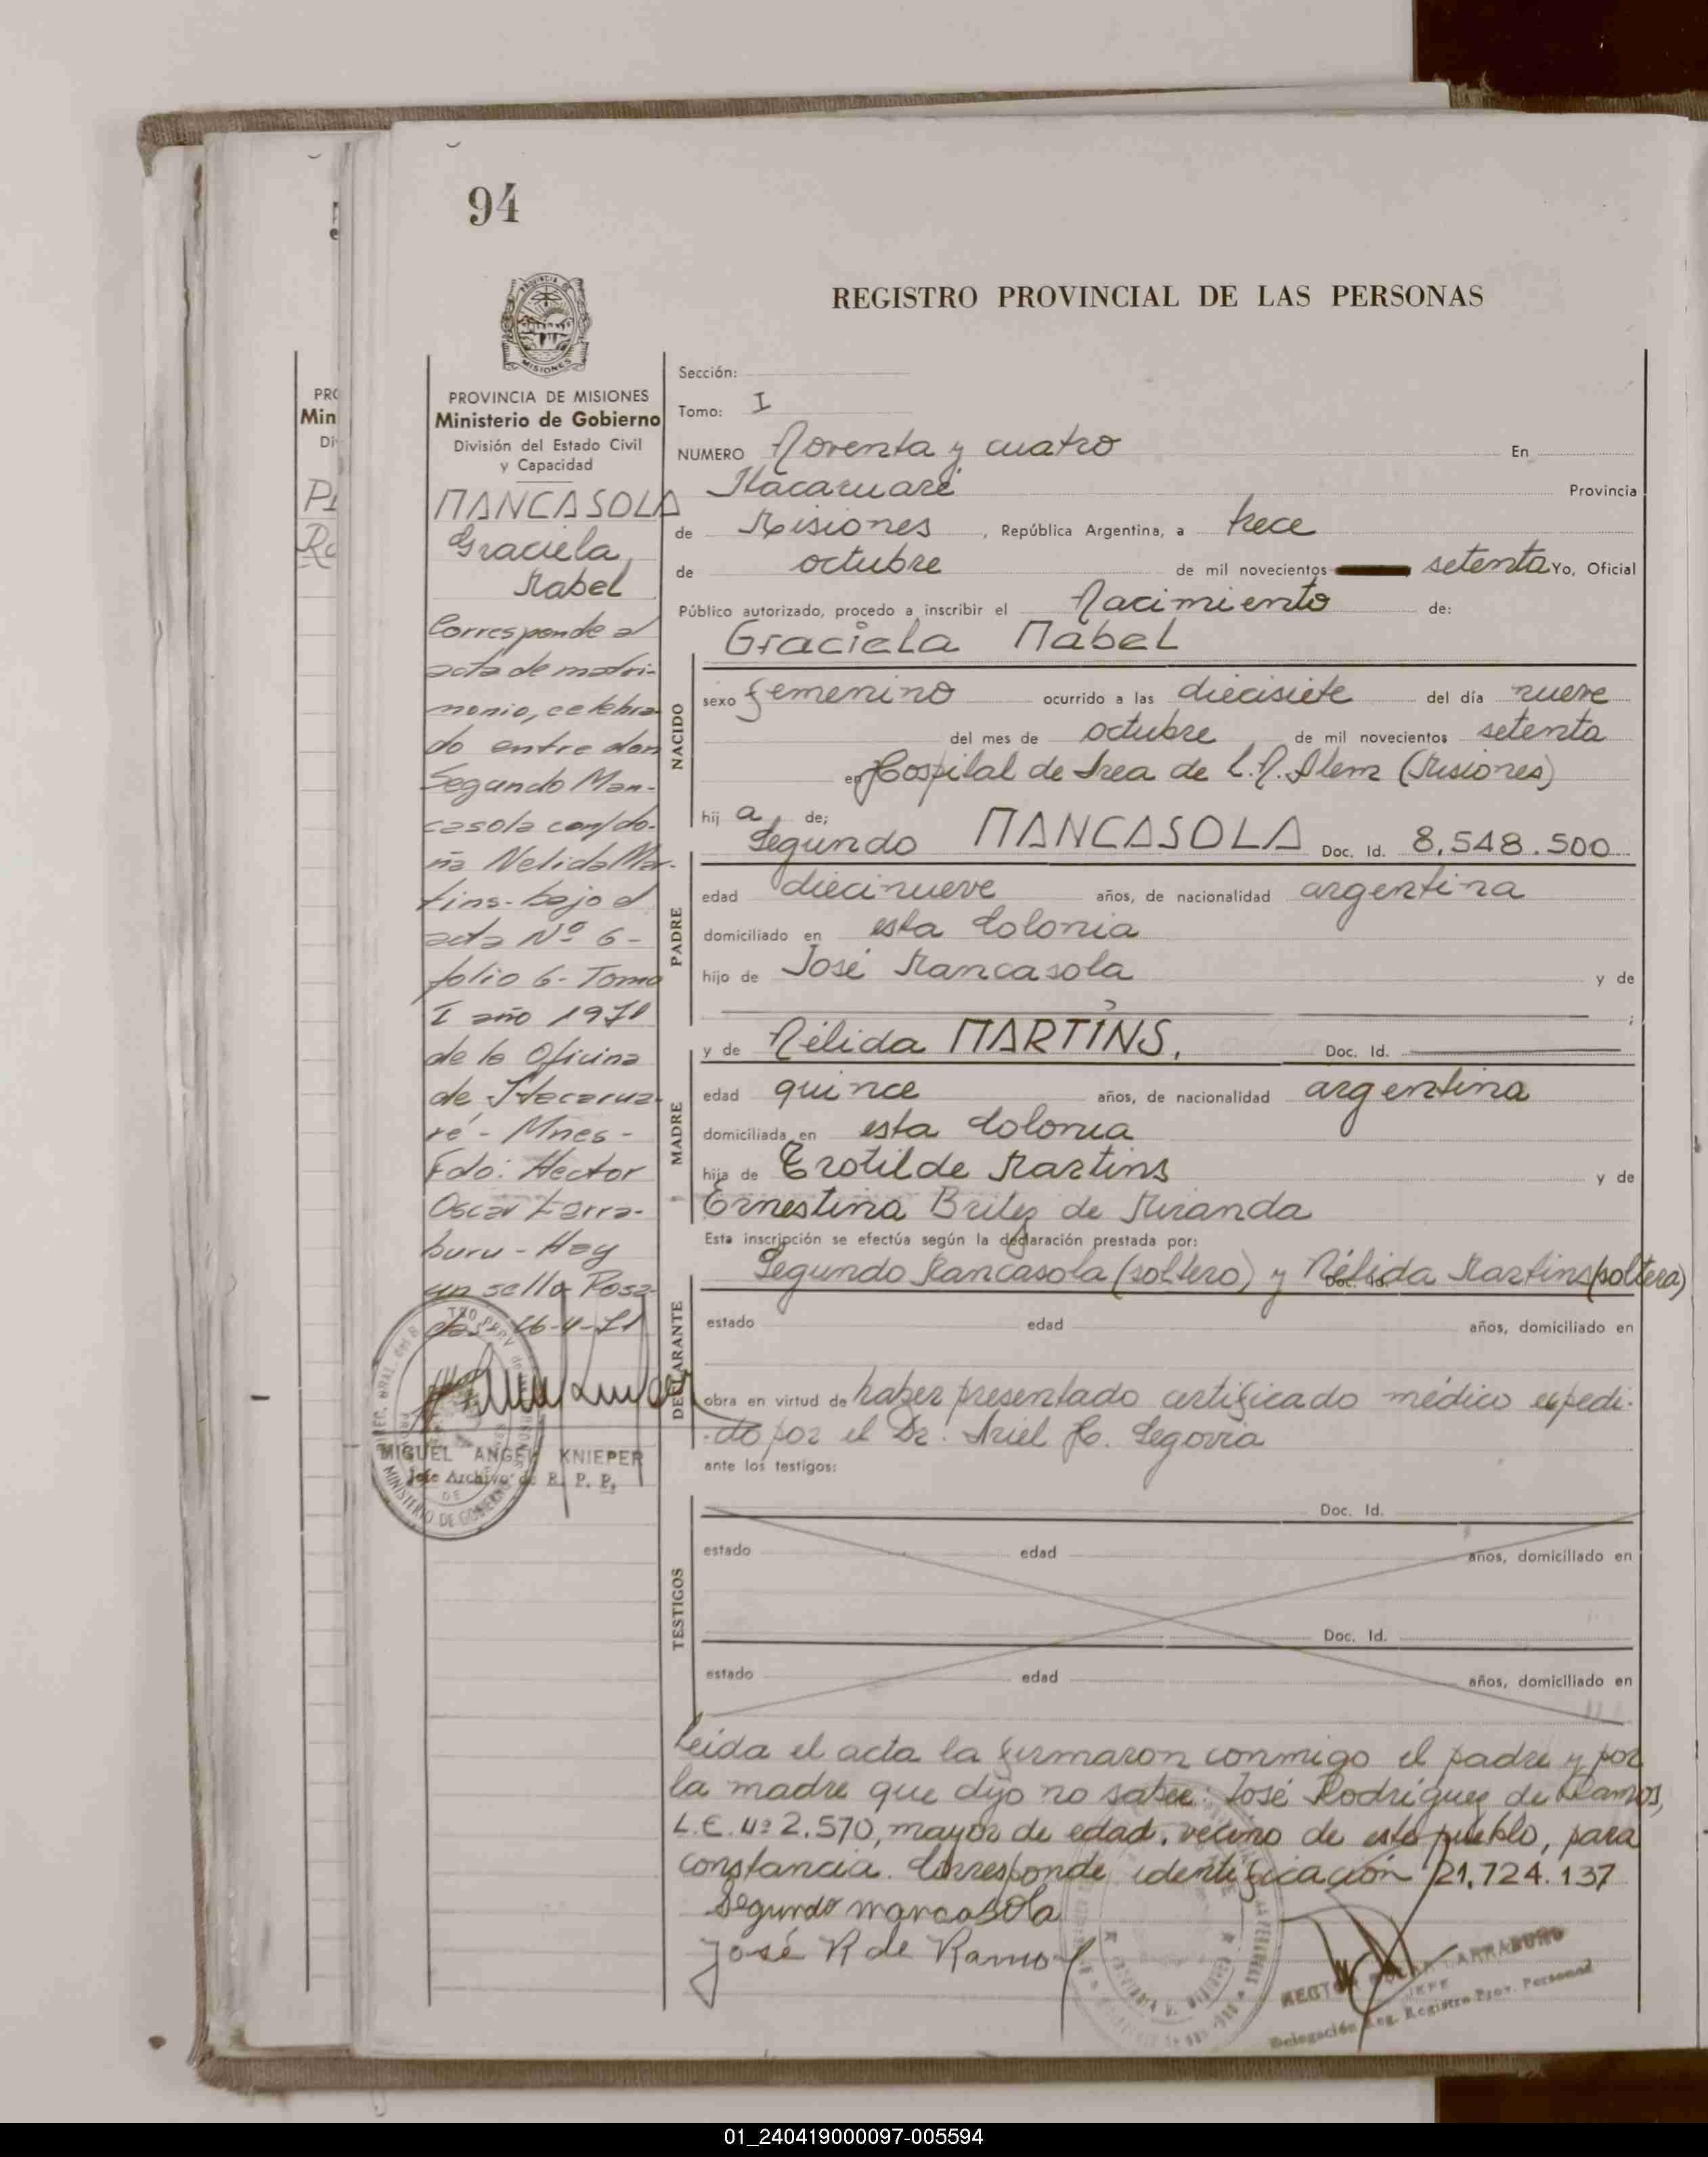 94
REGISTRO PROVINCIAL DE LAS PERSONAS
PROVINCIA DE MISIONES
Ministerio de Gobierno
División del Estado Civil
y Capacidad
MANCASOLA
Graciela
Mabel
Corresponde al
acta de matri-
monio, celebra
do entre don
Segundo Man-
casola con/do-
ña Nelida Mar-
tins- bajo el
acta Nº 6-
folio 6- Tomo
I año 1971
de la Oficina
de Itacarua-
ré - Mnes -
Fdo: Hector
Oscar Larra-
buru - Hay
un sello Posa-
das 26-4-71
MIGUEL ANGEL KNIEPER
Jefe Archivo de R. P. P.
MINISTERIO DE GOBIERNO
Sección:
Tomo: I
NUMERO Noventa y cuatro En
Itacaruaré Provincia
de Misiones, República Argentina, a trece
de octubre de mil novecientos setenta Yo, Oficial
Público autorizado, procedo a inscribir el Nacimiento de:
Graciela Mabel
NACIDO
sexo femenino ocurrido a las diecisiete del día nueve
del mes de octubre de mil novecientos setenta
en Hospital de Area de L.N. Alem (Misiones)
hij a de;
Segundo MANCASOLA Doc. Id. 8.548.500
PADRE
edad diecinueve años, de nacionalidad argentina
domiciliado en esta Colonia
hijo de José Mancasola y de
;
y de Nélida MARTINS, Doc. Id.
MADRE
edad quince años, de nacionalidad argentina
domiciliada en esta Colonia
hija de Erotilde Martins y de
Ernestina Britez de Miranda
Esta inscripción se efectúa según la declaración prestada por:
Segundo Mancasola (soltero) y Nélida Martins (soltera)
Doc. Id.
DECLARANTE
estado edad años, domiciliado en
obra en virtud de haber presentado certificado médico expedi-
do por el Dr. Ariel H. Segovia
ante los testigos:
TESTIGOS
Doc. Id.
estado edad años, domiciliado en
Doc. Id.
estado edad años, domiciliado en
Leída el acta la firmaron conmigo el padre y por
la madre que dijo no saber: José Rodríguez de Ramos,
L.E. Nº 2.570, mayor de edad, vecino de este pueblo, para
constancia. Corresponde identificación 21.724.137
Segundo mancasola
José R de Ramos
HECTOR OSCAR LARRABURU
JEFE
Delegación Reg. Registro Prov. Personas
PRO
Min
Di
01_240419000097-005594